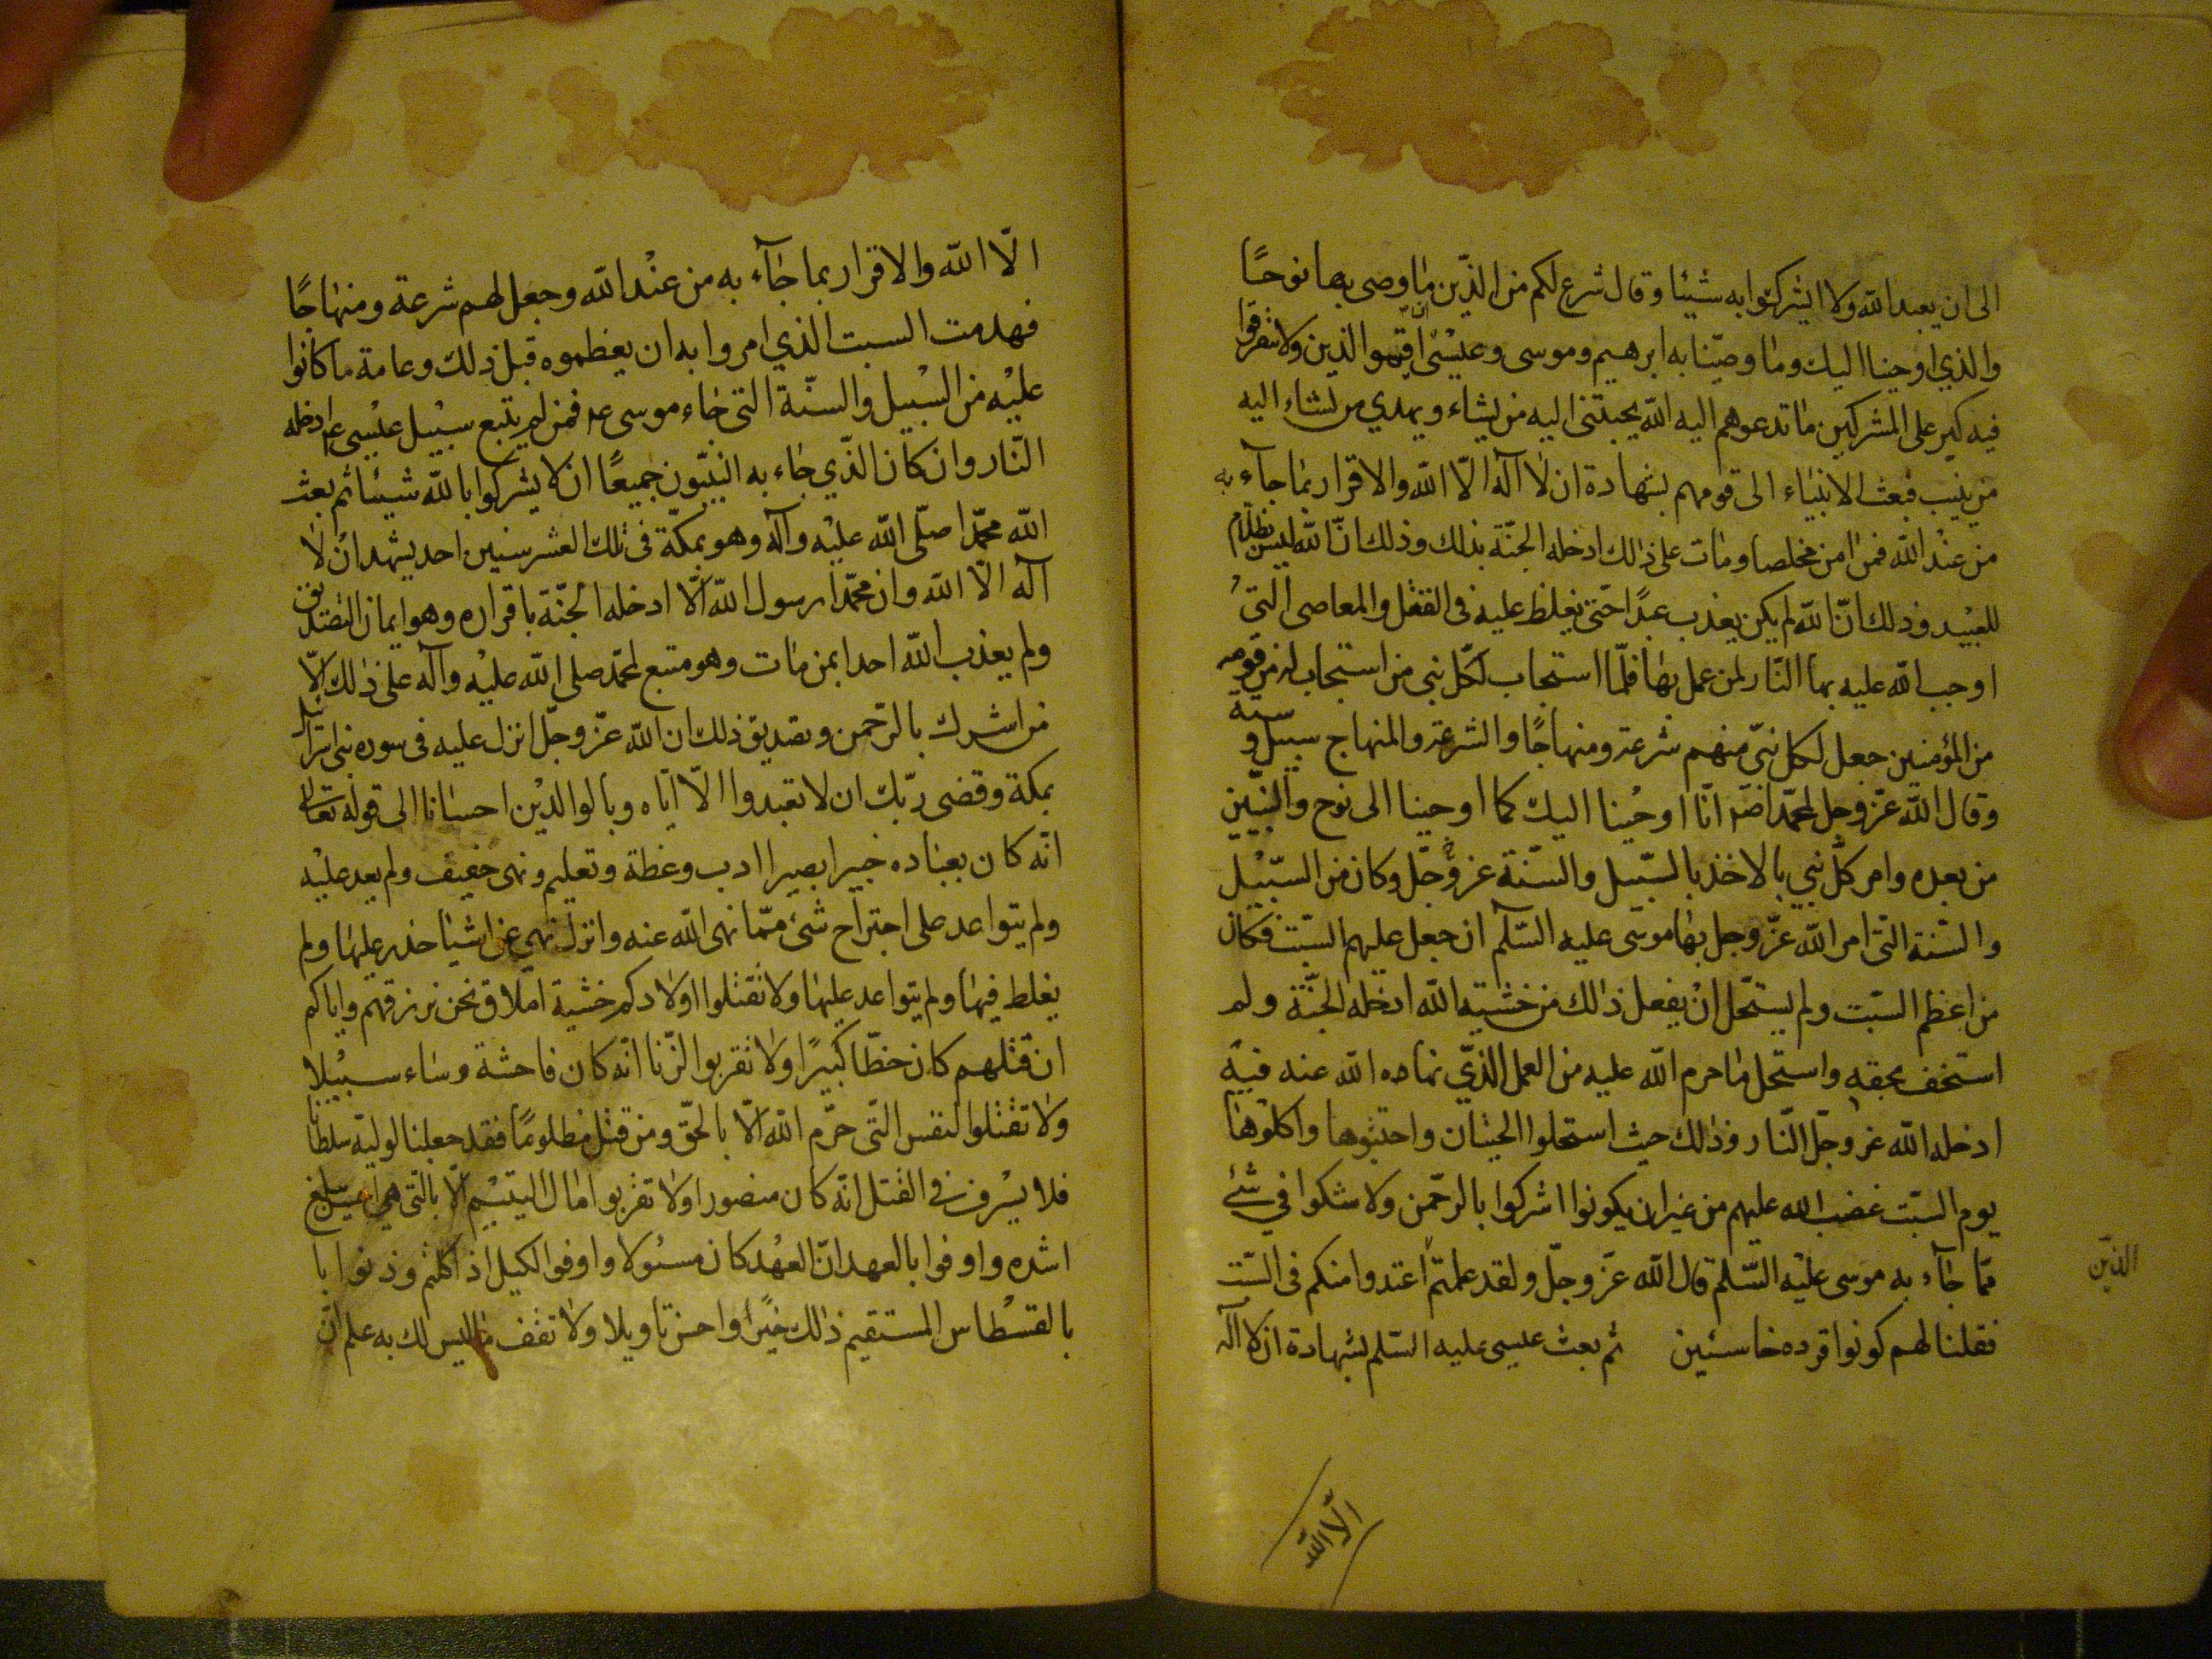 الى ان يعبد الله ولا ايشركوا به شيئا وقال شرع لكم من الذّين ما وصى بها نوحًا
والذي اوحينا اليك وما وصّينا به ابرهيم وموسى وعيسى ان اقيموا الذين ولا تتفرقوا
فيه كبر على المشركين ما تدعوهم اليه الله يجتبى اليه من يشاء ويهدي من يشاء اليه
من ينيب فبعث الانبياء الى قومهم بشهادة ان لا اله الّا الله والاقرار بما جآء به
من عند الله فمن امن مخلصا ومات على ذلك ادخله الجنّة بذلك وذلك انّ الله ليس بظلّام
للعبيد وذلك انّ الله لم يكن يعذب عبدًا حتى يغلظ عليه فى القتل والمعاصى التى
اوجب الله عليه بها النّار لمن عمل بها فلمّا استجاب لكلّ نبى من استجاب له من قومه
من المؤمنين جعل لكل نبيّ منهم شرعة ومنهاجًا والشرعة والمنهاج سبيل و سنة
وقال الله عزّ وجل لمحمّد ص انّا اوحينا اليك كما اوحينا الى نوح والنبّيين
من بعده وامر كلّ نبي بالاخذ بالسّبيل والسّنة عز وجّل وكان من السّبيل
والسّنة التى امر الله عزّ وجل بها موسى عليه السّلم ان جعل عليهم السّبت فكان
من اعظم السّبت ولم يستحّل ان يفعل ذلك من خشيته الله ادخله الجنّة ولم
استخف بحقه واستحل ما حرم الله عليه من العمل الذّي نهاه الله عنه فيه
ادخله الله عز وجّل النّار وذلك حيث استحلوا الحيتان واحتبوها واكلوها
يوم السّبت غضب الله عليهم من غير ان يكونوا اشركوا بالرّحمن ولا شكوا في شئ
ممّا جآء به موسى عليه السّلم قال الله عزّ وجلّ ولقد علمتم اعتدوا منكم فى السّبت
فقلنا لهم كونوا قرده خاسئين ثم بعث عيسى عليه السّلم بشهادة ان لا اله
الذّين
الّا الله
الّا الله والاقرار بما جآء به من عند الله وجعل لهم شرعة ومنهاجًا
فهدمت السبت الذي امروا به ان يعظموه قبل ذلك وعامة ما كانوا
عليه من السبيل والسنّة التى جاء موسى ع فمن لم يتبع سبيل عيسى ع ادخله
النّار وان كان الذّي جاء به النبيّون جميعًا ان لا يشركوا بالله شيئا ثم بعث
الله محمّدا صلّى الله عليه وآله وهو بمكّة فى تلك العشر سنين احد يشهد ان لا
اله الّا الله وان محمّدا رسول الله الّا ادخله الجنّة باقراره وهو ايمان التصديق
ولم يعذب الله احدا بمن مات وهو متبع لمحمّد صلى الله عليه وآله على ذلك الّا
من اشرك بالرّحمن وتصديق ذلك ان الله عزّ وجلّ انزل عليه فى سوره بنى اسرائيل
بمكة وقضى ربّك ان لا تعبدوا الّا ايّاه وبالوالدين احسانا الى قوله تعالى
انّه كان بعباده خبيرا بصيرا ادب وعظة وتعليم ونهى خفيف ولم يعد عليه
ولم يتواعد على اجتراح شئ ممّا نهى الله عنه وانزل نهي عن اشيا حذر عليها ولم
يغلط فيها ولم يتواعد عليها ولا تقتلوا اولادكم خشية املاق نحن نرزقهم واياكم
ان قتلهم كان خطّا كبيرًا ولا تقربوا الزّنا انّه كان فاحشة وساء سبيلا
ولا تقتلوا النفس التّى حرّم الله الّا بالحّق ومن قتل مظلومًا فقد جعلنا لوليّه سلطانا
فلا يسرف في القتل انّه كان منصورا ولا تقربوا مال اليتيم الّا بالتى هي احسن حتى يبلغ
اشده واوفوا بالعهد انّ العهد كان مسئولا واوفوا الكيل اذا كلتم وزنوا با
بالقسطاس المستقيم ذلك خيرًا واحسن تاويلا ولا تقف ما ليس لك به علم انّ